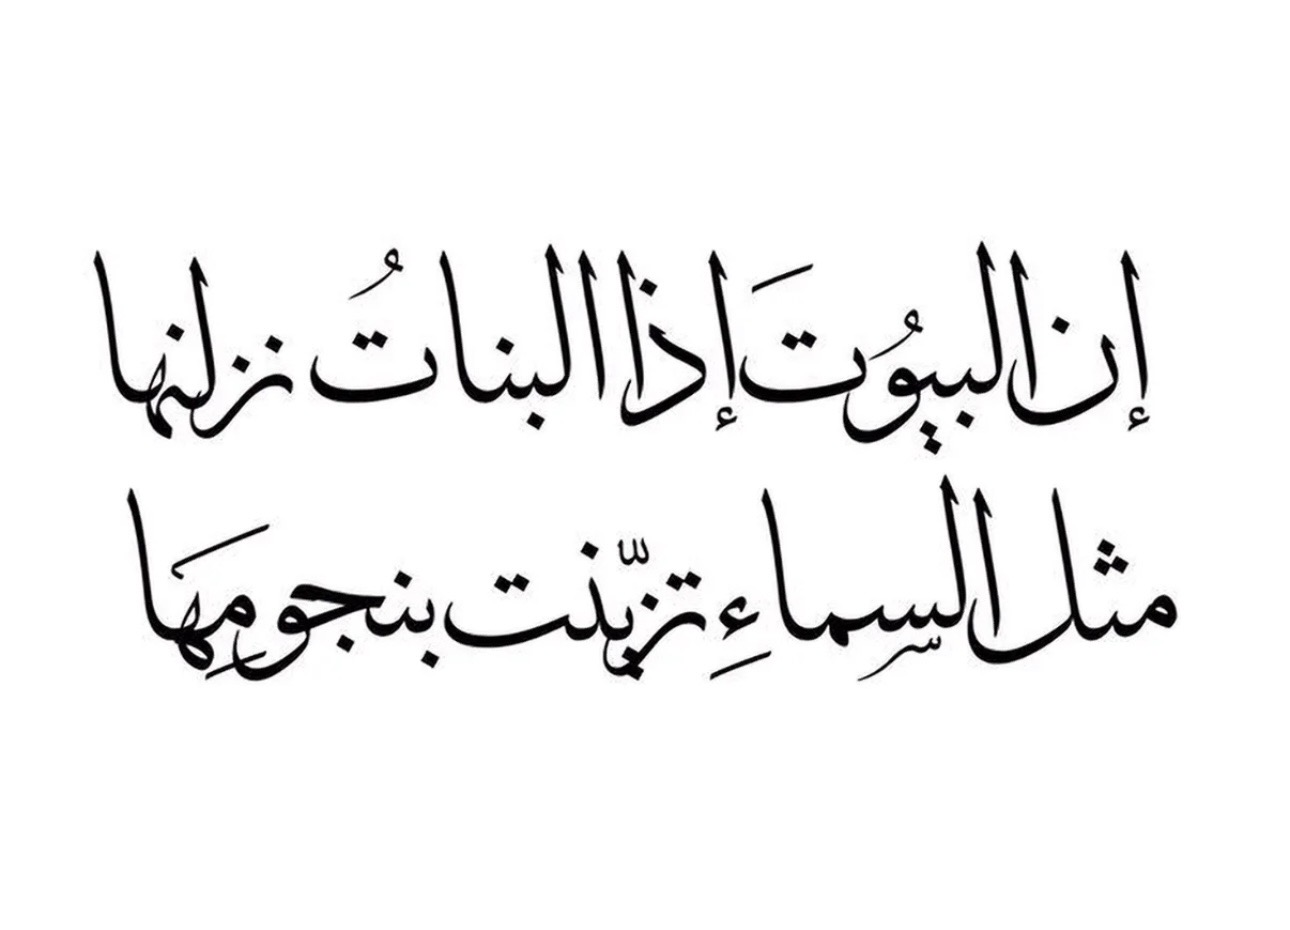 إن البيُوتَ إذا البناتُ نزلنها
مثل السِّماءِ تزيّنت بنجومِهَا